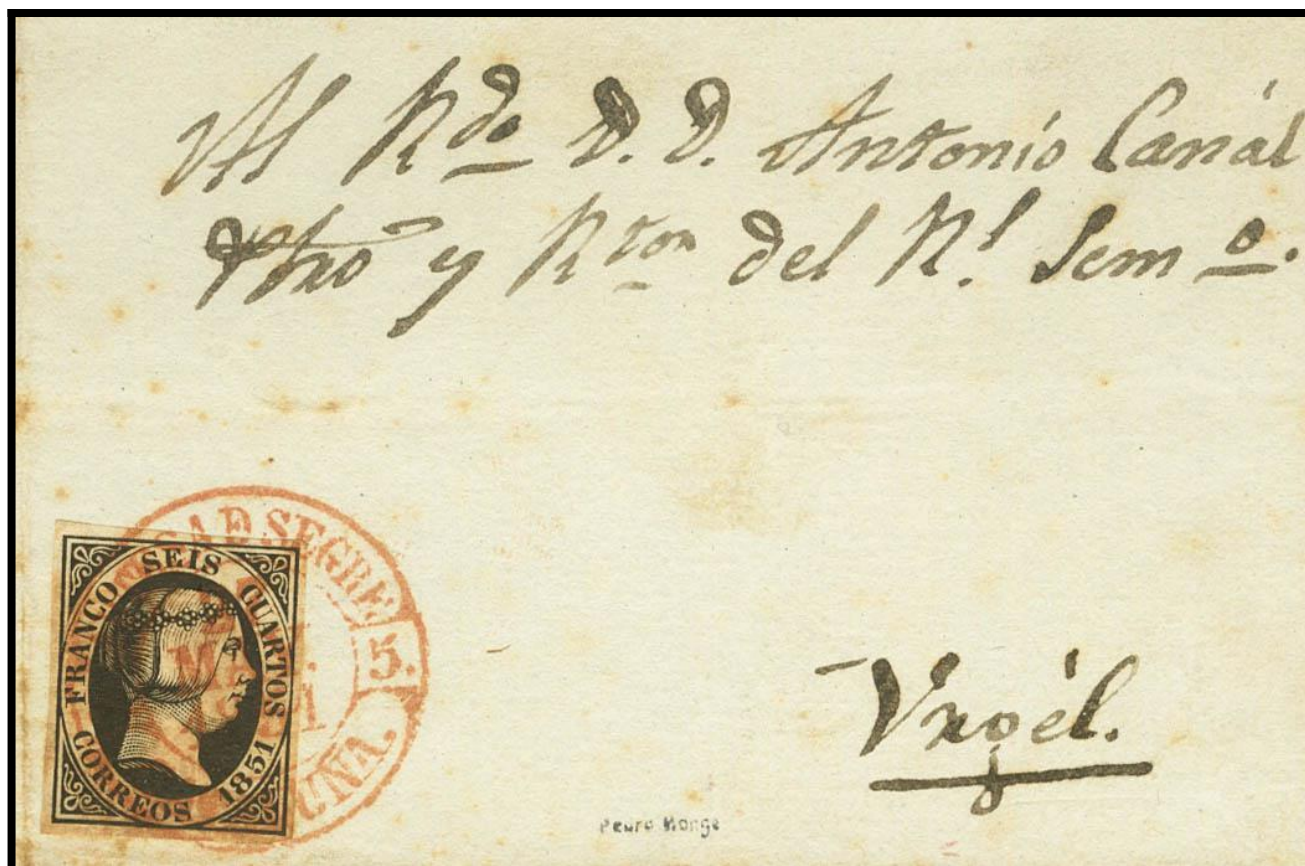 Al Rdo D. D. Antonio Canál
Pbro y Rtor del Rl. Semo.
SEGRE
5.
UNA.
FRANCO SEIS CUARTOS
CORREOS 1851
Urgél.
Pedro Monge